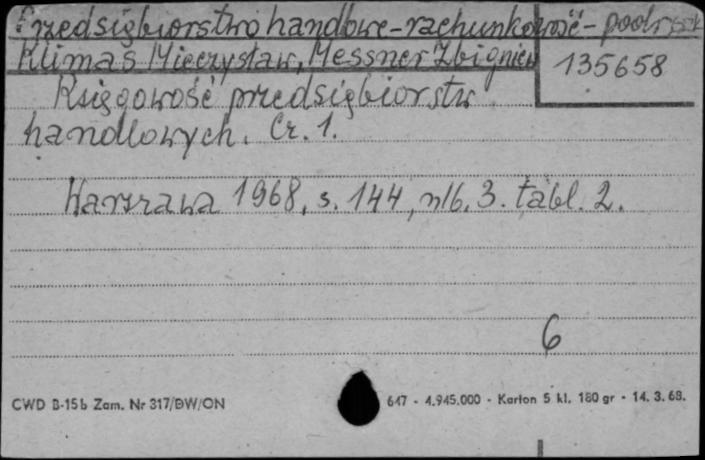 Przedsiębiorstwo handlowe-rachunkowość-podręcz
Klimas Mieczysław, Messner Zbigniew
135658
Księgowość przedsiębiorstw
handlowych. Cz. 1.
Warszawa 1968, s. 144, nlb. 3. tabl. 2.
6
CWD B-15b Zam. Nr 317/DW/ON 647 - 4.945.000 - Karton 5 kl. 180 gr - 14. 3. 68.